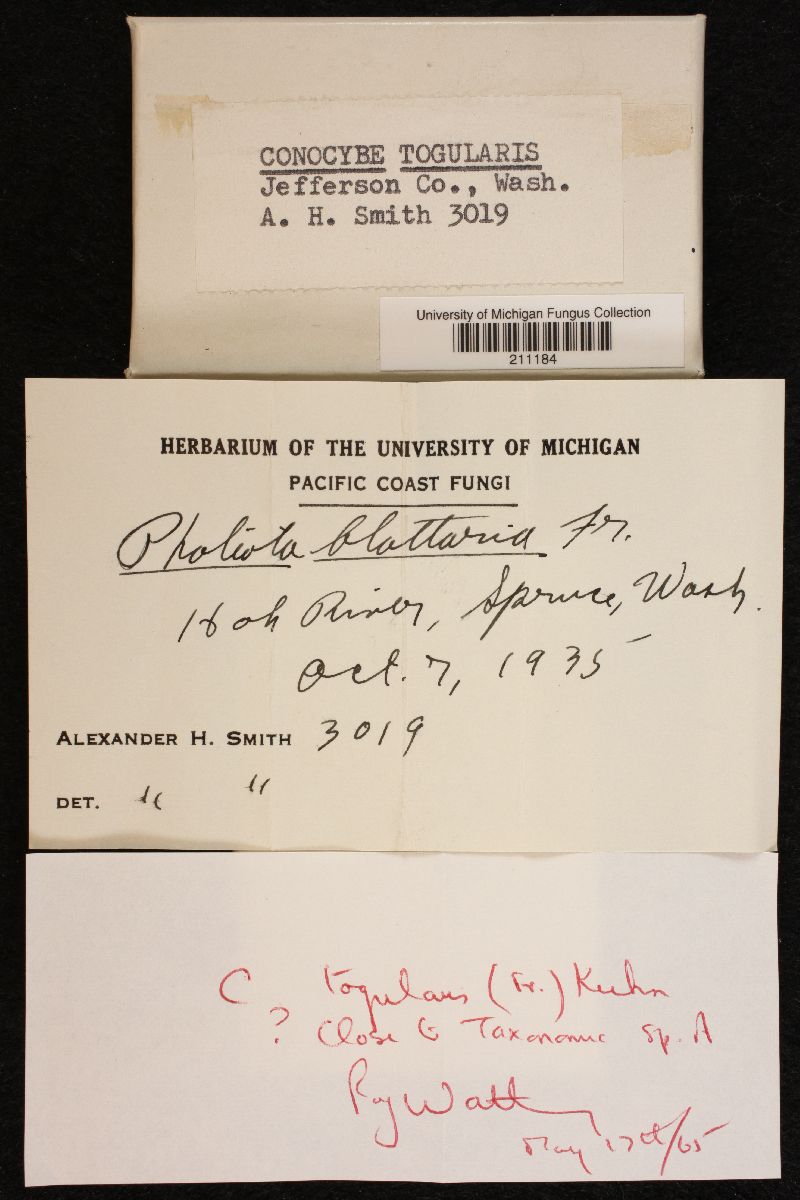 CONOCYBE TOGULARIS
Jefferson Co., Wash.
A. H. Smith 3019
University of Michigan Fungus Collection
211184
HERBARIUM OF THE UNIVERSITY OF MICHIGAN
PACIFIC COAST FUNGI
Pholiota blattaria Fr.
Hoh River, Spruce, Wash.
Oct. 7, 1935
ALEXANDER H. SMITH 3019
DET. " "
C togularis (Fr.) Kuhn
? Close to Taxonomic sp. A
Roy Watling
May 17th/65